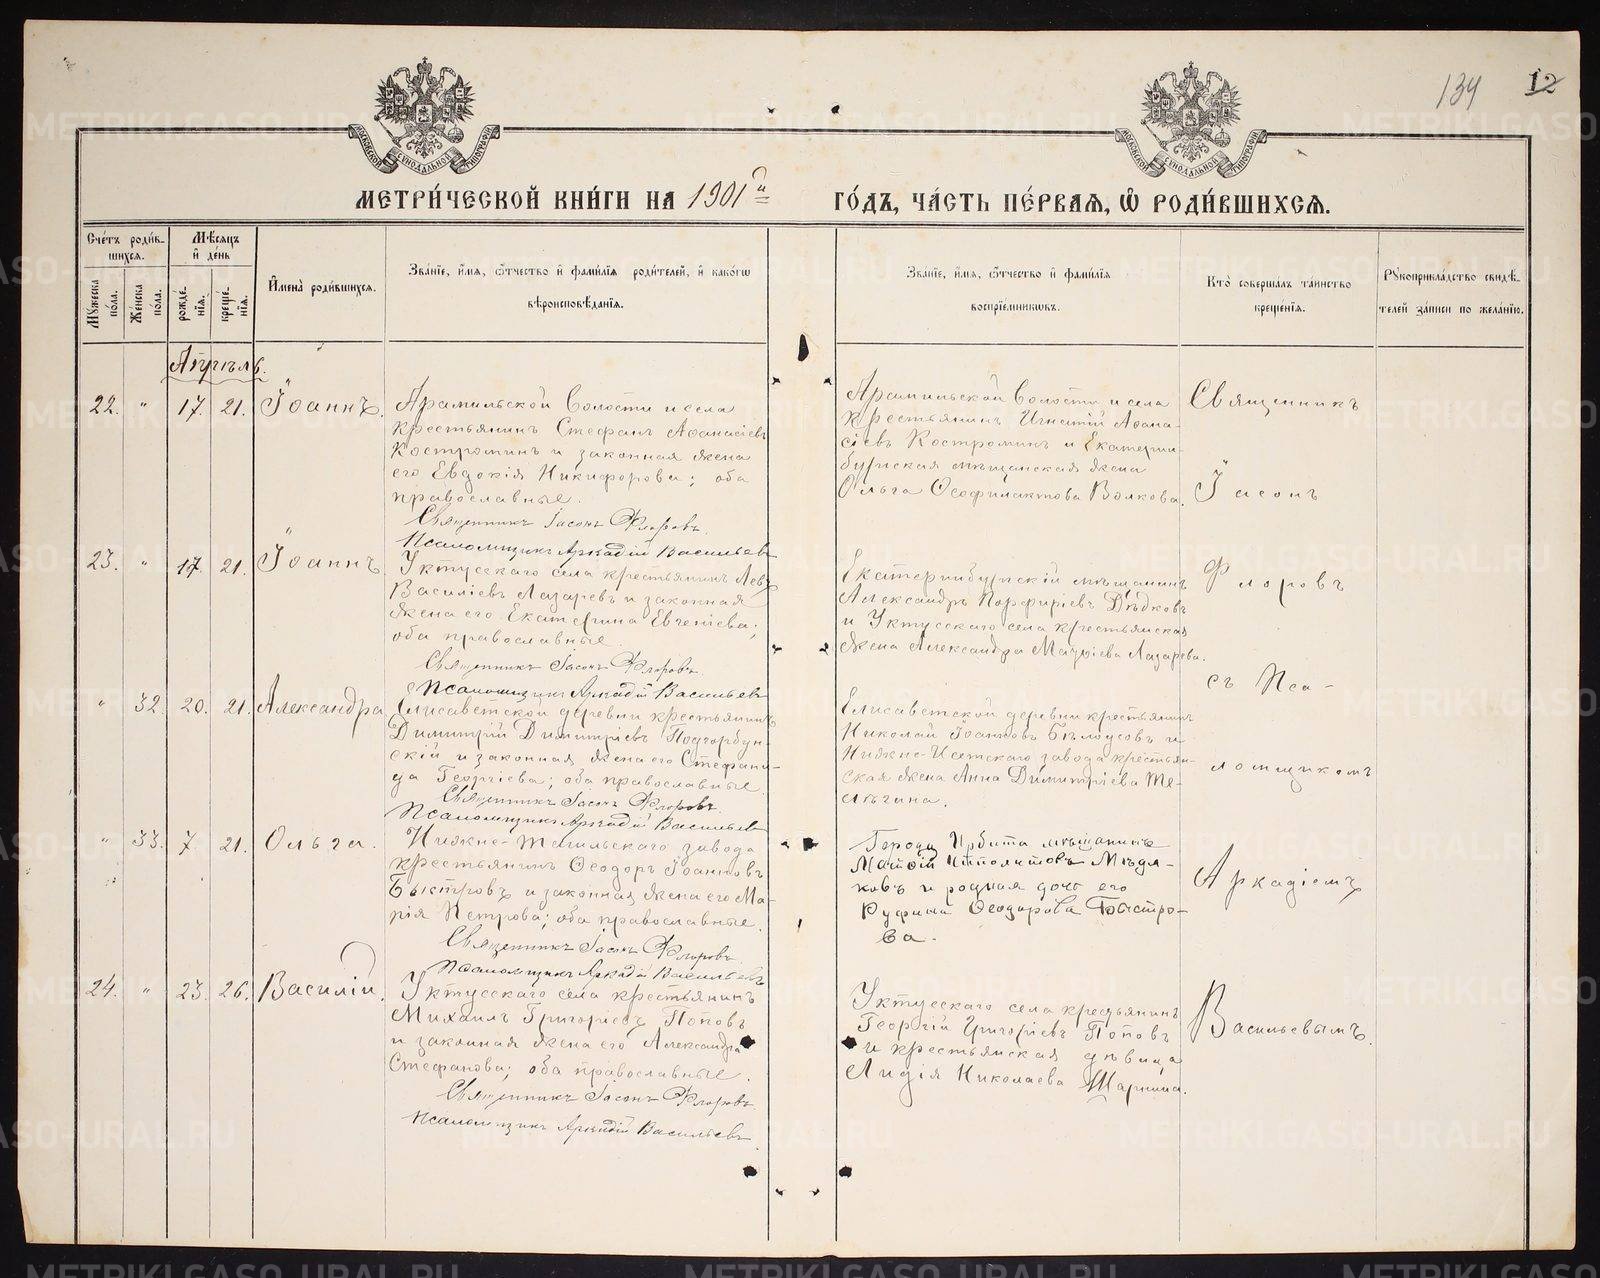 134 12
МОСКОВСКОЙ СѴНОДАЛЬНОЙ ТИПОГРАФІИ
МОСКОВСКОЙ СѴНОДАЛЬНОЙ ТИПОГРАФІИ
МЕТРИ́ЧЕСКОЙ КНИ́ГИ НА 1901й ГО́ДЪ, ЧА́СТЬ ПЕ́РВАЯ, Ѿ РОДИ́ВШИХСЯ.
Сче́тъ роди́в-
шихся.
Мꙋ́жеска по́ла.
Же́нска по́ла.
Мѣ́сяцъ и де́нь
рожде́-
нія.
креще́-
нія.
Имена̀ роди́вшихся.
Зва́ніе, и́мя, ѻ́тчество и фами́лія роди́телей, и како́гѡ
вѣроисповѣ́данія.
Зва́ніе, и́мя, ѻ́тчество и фами́лія
воспріе́мникѡвъ.
Кто̀ соверша́лъ та́инство
креще́нія.
Рꙋкоприкла́дство свидѣ́-
телей за́писи по жела́нію.
Апрѣль.
22. " 17. 21. Іоаннъ.
Арамильской волости и села
крестьянинъ Стефанъ Аѳанасіевъ
Костроминъ и законная жена
его Евдокія Никифорова; оба
православные.
Священникъ Іасонъ Флоровъ.
Псаломщикъ Аркадій Васильевъ
Арамильской волости и села
крестьянинъ Игнатій Аѳана-
сіевъ Костроминъ и Екатерин-
бургская мѣщанская жена
Ольга Ѳеофилактова Волкова.
23. " 17. 21. Іоаннъ
Уктусскаго села крестьянинъ Левъ
Василіевъ Лазаревъ и законная
жена его Екатерина Евгеніева;
оба православные
Священникъ Іасонъ Флоровъ.
Псаломщикъ Аркадій Васильевъ
Екатеринбургскій мѣщанинъ
Александръ Порфиріевъ Дѣдковъ
и Уктусскаго села крестьянская
жена Александра Лазарева.
" 32. 20. 21. Александра
Елисаветской деревни крестьянинъ
Димитрій Димитріевъ Подгорбун-
скій и законная жена его Стефани-
да Георгіева; оба православные
Священникъ Іасонъ Флоровъ.
Псаломщикъ Аркадій Васильевъ
Елисаветской деревни крестьянинъ
Николай Іоанновъ Бѣлоусовъ и
Нижне-Исетскаго завода крестьян-
ская жена Анна Димитріева Те-
" 33. 7. 21. Ольга.
Нижне-Тагильскаго завода
крестьянинъ Ѳеодоръ Іоанновъ
Быстровъ и законная жена его Ма-
рія Петрова; оба православные.
Священникъ Іасонъ Флоровъ.
Псаломщикъ Аркадій Васильевъ
Города Ирбита мѣщанинъ
Матѳій Ипполитовъ Мѣдя-
ковъ и родная дочь его
Руфина Ѳеодорова Быстро-
ва.
24. " 23. 26. Василій.
Уктусскаго села крестьянинъ
Михаилъ Григоріевъ Поповъ
и законная жена его Александра
Стефанова; оба православные.
Священникъ Іасонъ Флоровъ
Псаломщикъ Аркадій Васильевъ.
Уктусскаго села крестьянинъ
Георгій Григоріевъ Поповъ
и крестьянская дѣвица
Лидія Николаева
Священникъ
Іасонъ
Флоровъ
съ Пса-
ломщикомъ
Аркадіемъ
Васильевымъ.
METRIKI.GASO-URAL.RU